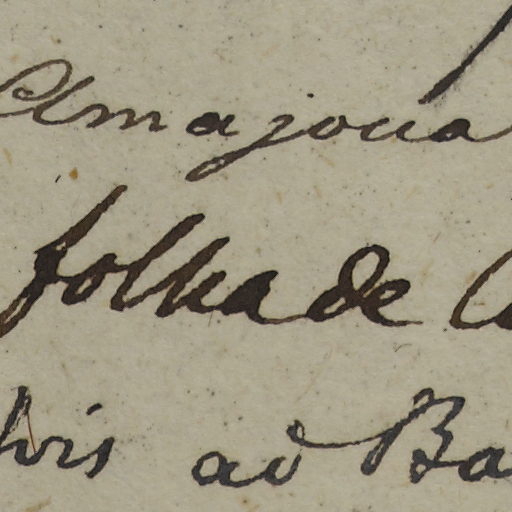 Uma joua
folha de
ao Ba